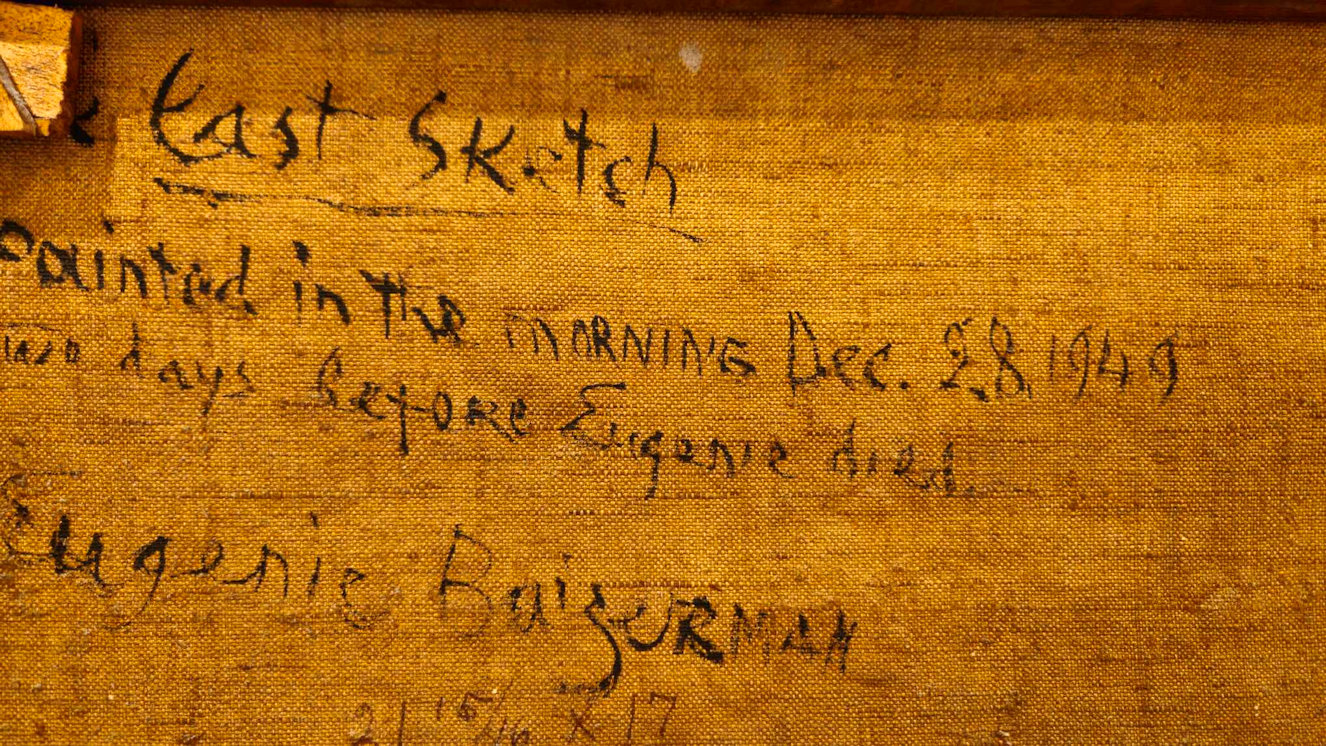 East Sketch
Painted in the MORNING Dec. 28 1949
days before Eugenie died
Eugenie BaizERMAN
21 15/16 X 17